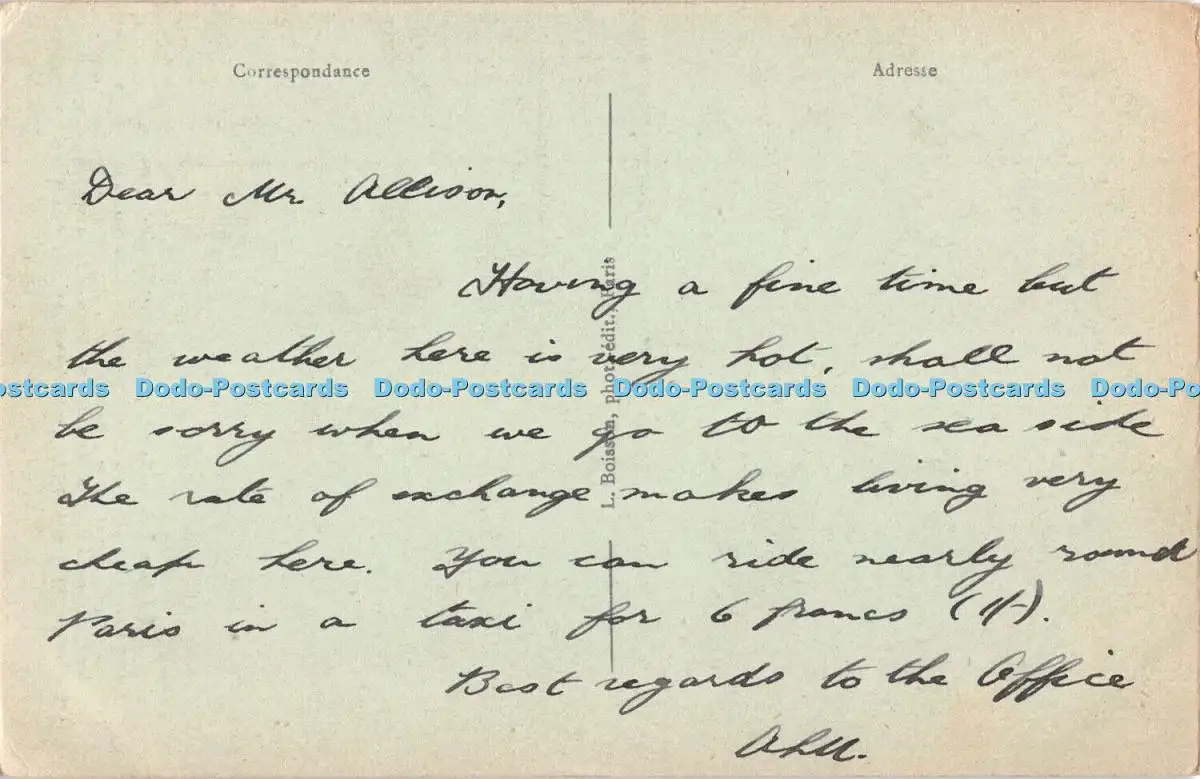 Correspondance
Adresse
Dear Mr Allison,
Having a fine time but
the weather here is very hot, shall not
be sorry when we go to the sea side
The rate of exchange makes living very
cheap here. You can ride nearly round
Paris in a taxi for 6 francs (1/-).
Best regards to the Office
L. Boisson, phot. édit. Paris
Dodo-Postcards Dodo-Postcards Dodo-Postcards Dodo-Postcards